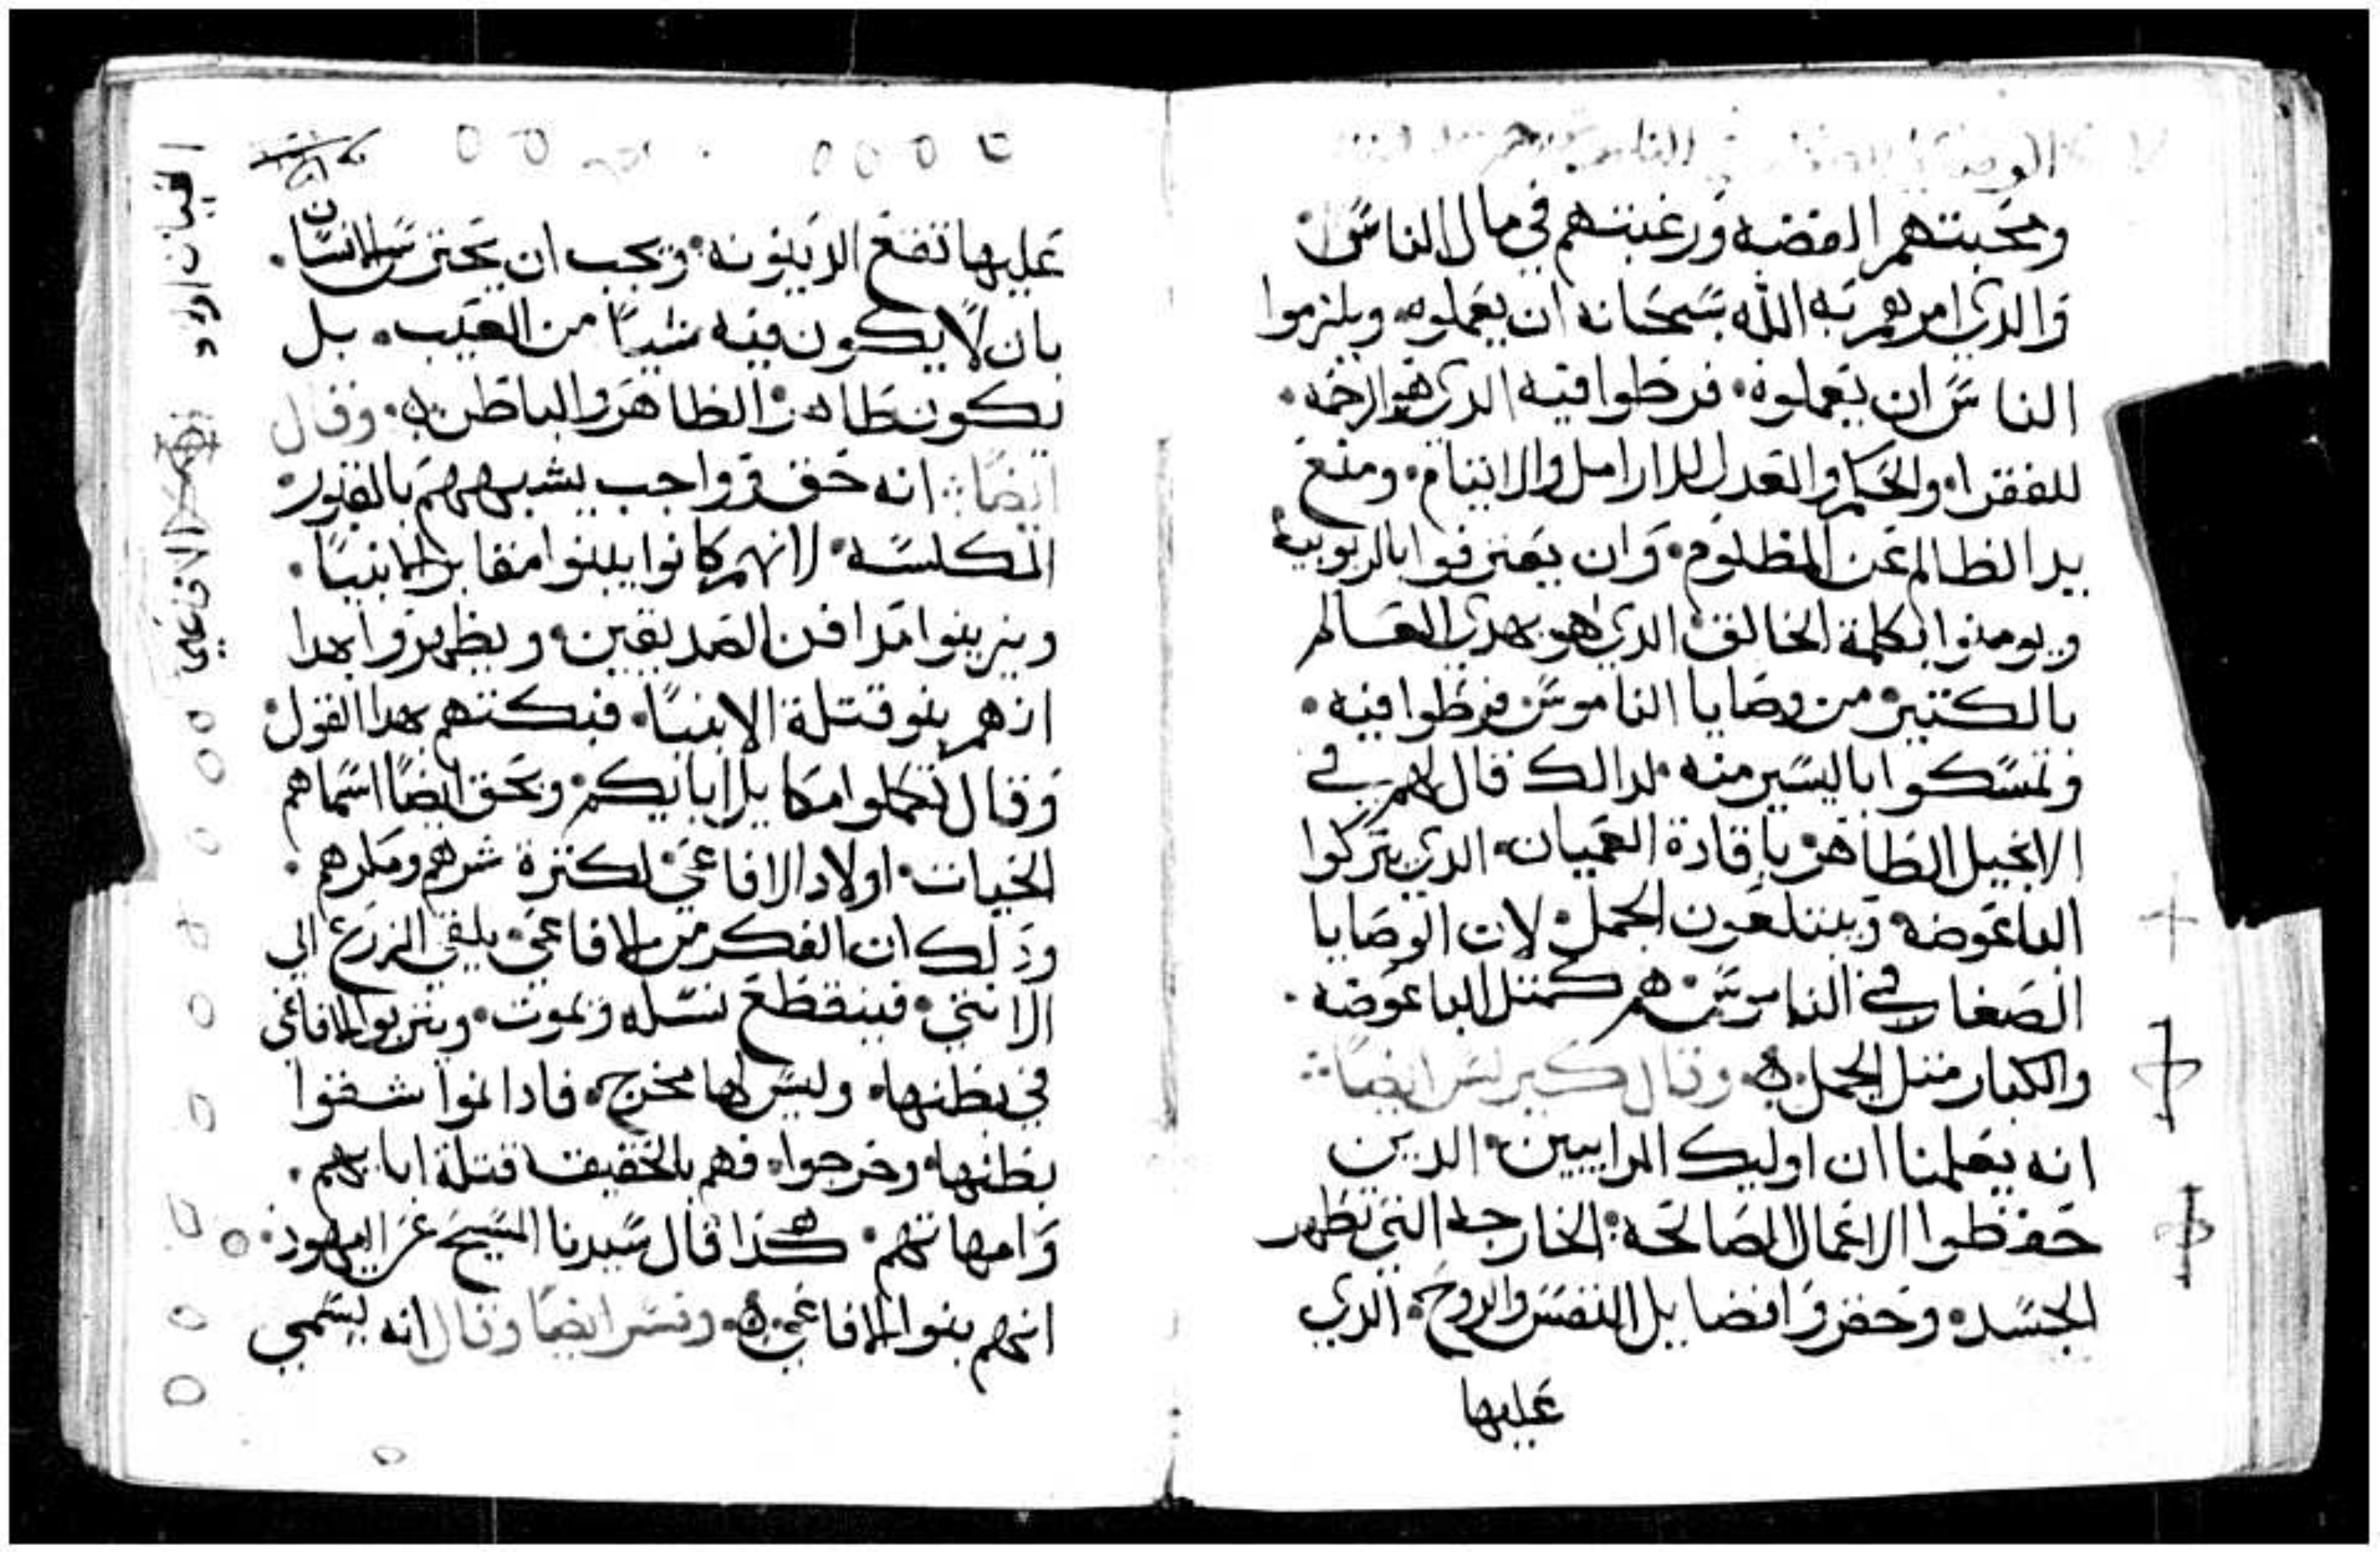 ومحبتهم الفضه ورغبتهم في مال الناس
والدي امرهم به الله سبحانه ان يعملوه ويلزموا
الناس ان يعملوه فرطوا فيه الدي هو الرحمه
للفقرا والحكم والعدل للارامل والايتام ومنع
يد الظالم عن المظلوم وان يعترفوا بالربوبية
ويومنوا بكلمة الخالق الدي هو يهدي العالم
بالكتير من وصايا الناموس فرطوا فيه
وتمسكوا باليسير منه لدالك قال لهم في
الانجيل الطاهر يا قادة العميان الدي يتركوا
الباعوضه ويبتلعون الجمل لان الوصايا
الصغار في الناموس هم كمتل الباعوضه
والكبار متل الجمل وقال كيرلس ايضا
انه يعلمنا ان اوليك المراييين الدين
حفظوا الاعمال الصالحه الخارجه التي تطهر
الجسد وحفروا فضايل النفس والروح الدي
عليها
عليها تقع الدينونه ويجب ان يحترس الانسان
بان لا يكون فيه شيا من العيب بل
يكون طاهر الظاهر والباطن وقال
ايضا انه حق وواجب يشبههم بالقبور
المكلسه لانهم كانوا يبنوا مقابر الانبيا
ويزينوا مدافن الصديقين ويظهروا بهدا
انهم بنو قتلة الانبيا فبكتهم بهدا القول
وقال تكملوا مكاييل ابايكم وبحق ايضا اسماهم
الحيات اولاد الافاعي لكترة شرهم ومكرهم
وذلك ان الفكر من الافاعي يلقي الزرع الي
الانتي فينقطع نسله ويموت ويتربوا الافاعي
في بطنها وليس لها مخرج فادا نموا شقوا
بطنها وخرجوا فهم بالحقيقه قتلة ابايهم
وامهاتهم كذا قال سيدنا المسيح عن اليهود
انهم بنوا الافاعي وفسر ايضا وقال انه يسمي
الحيات اولاد
الافاعي